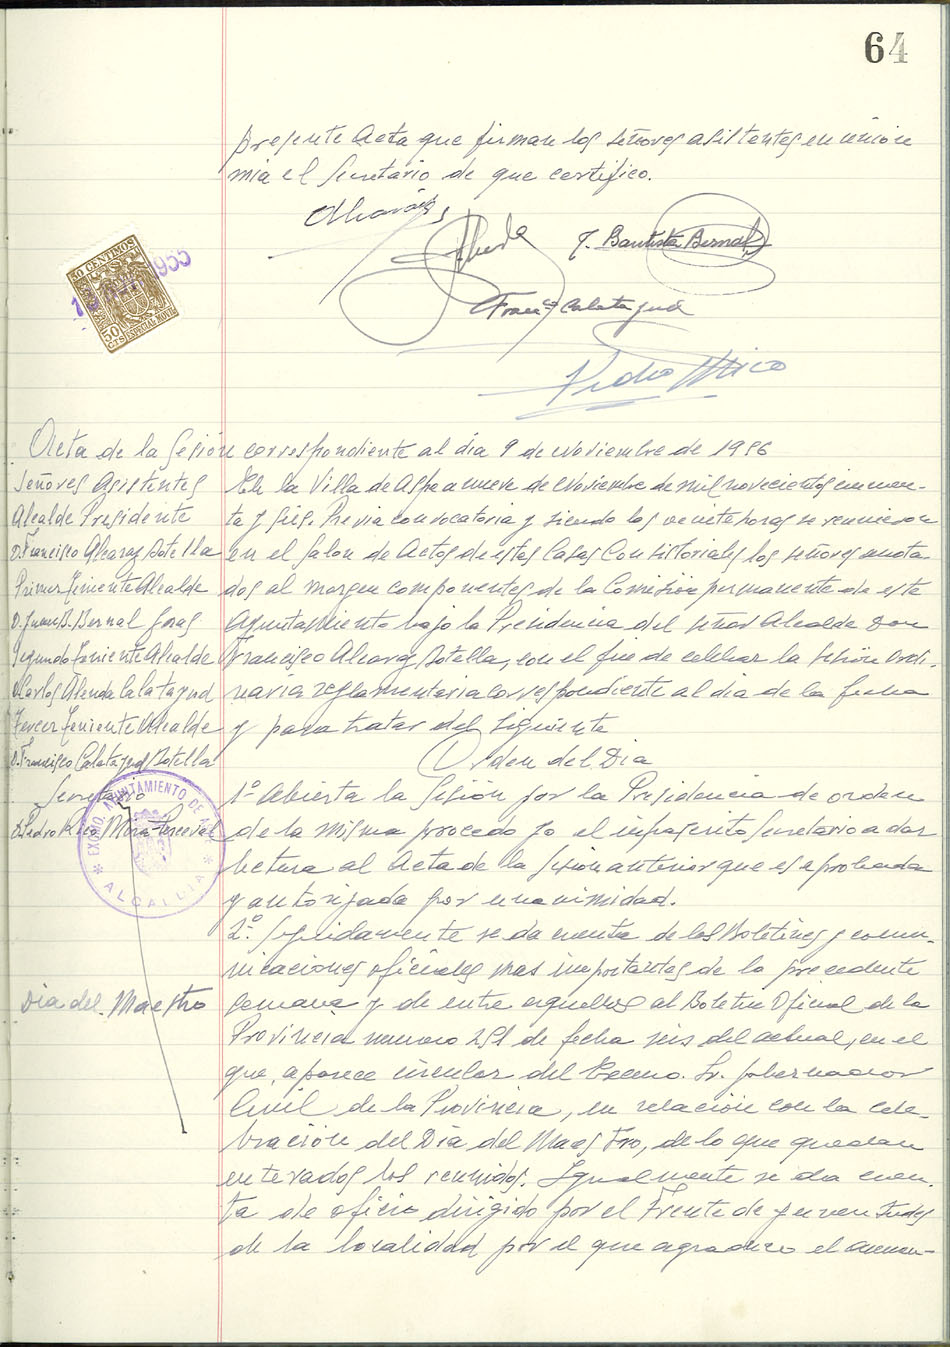 64
presente Acta que firman los señores asistentes en unión
mia el Secretario de que certifico.
Alcaraz
J. Bautista Bernal
Franco Calatayud
Pedro Mico
50 CENTIMOS
1955
50 CTS ESPECIAL MOVIL
Acta de la Sesión correspondiente al dia 9 de Noviembre de 1956
Señores Asistentes
Alcalde Presidente
D. Francisco Alcaraz Botella
Primer Teniente Alcalde
D. Juan B. Bernal
Segundo Teniente Alcalde
D. Carlos Alenda Calatayud
Tercer Teniente Alcalde
D. Francisco Calatayud Botella
Secretario
D. Pedro Mico Mira-Perceval
EXCMO. AYUNTAMIENTO DE ASPE
* ALCALDIA *
En la Villa de Aspe a nueve de Noviembre de mil novecientos cincuen-
ta y seis. Previa convocatoria y siendo las veinte horas se reunieron
en el Salon de Actos de estas Casas Consistoriales los señores anota
dos al margen componentes de la Comisión permanente de este
Ayuntamiento bajo la Presidencia del señor Alcalde don
Francisco Alcaraz Botella, con el fin de celebrar la sesión ordi-
naria reglamentaria correspondiente al dia de la fecha
y para tratar del siguiente
Orden del Dia
1º Abierta la Sesión por la Presidencia de orden
de la misma procedo yo el infrascrito Secretario a dar
lectura al Acta de la sesión anterior que es aprobada
y autorizada por unanimidad.
2º. Seguidamente se da cuenta de los Boletines y comu-
nicaciones oficiales mas importantes de la precedente
Dia del Maestro
semana y de entre aquellos al Boletin Oficial de la
Provincia numero 251 de fecha seis del actual, en el
que, aparece circular del Excmo. Sr. Gobernador
Civil de la Provincia, en relación con la cele-
bración del Dia del Maestro, de lo que quedan
enterados los reunidos. Igualmente se da cuen-
ta de oficio dirigido por el Frente de Juventudes
de la localidad por el que agradece el aumen-